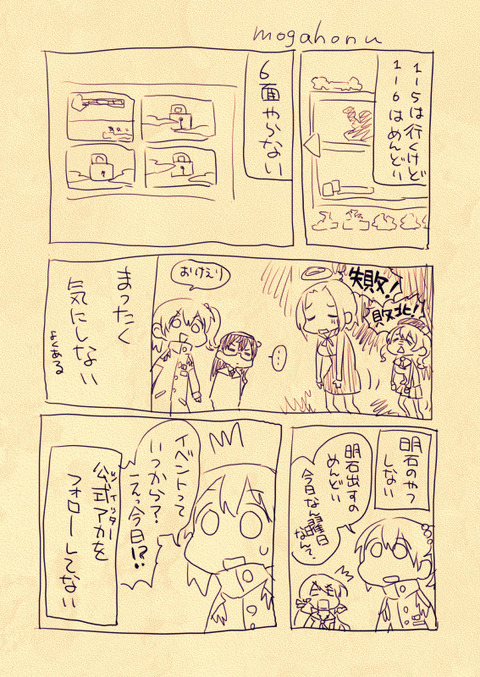 mogahonu
1-5は行くけど
1-6はめんどい
6面やらない
失敗！
敗北！
…
おけえり
まったく
気にしない
よくある
明石のやつ
しない
明石出すの
めんどい
今日なん曜日
なんで
イベントって
いつから？
えっ今日!?
公式アカを
フォローしてない